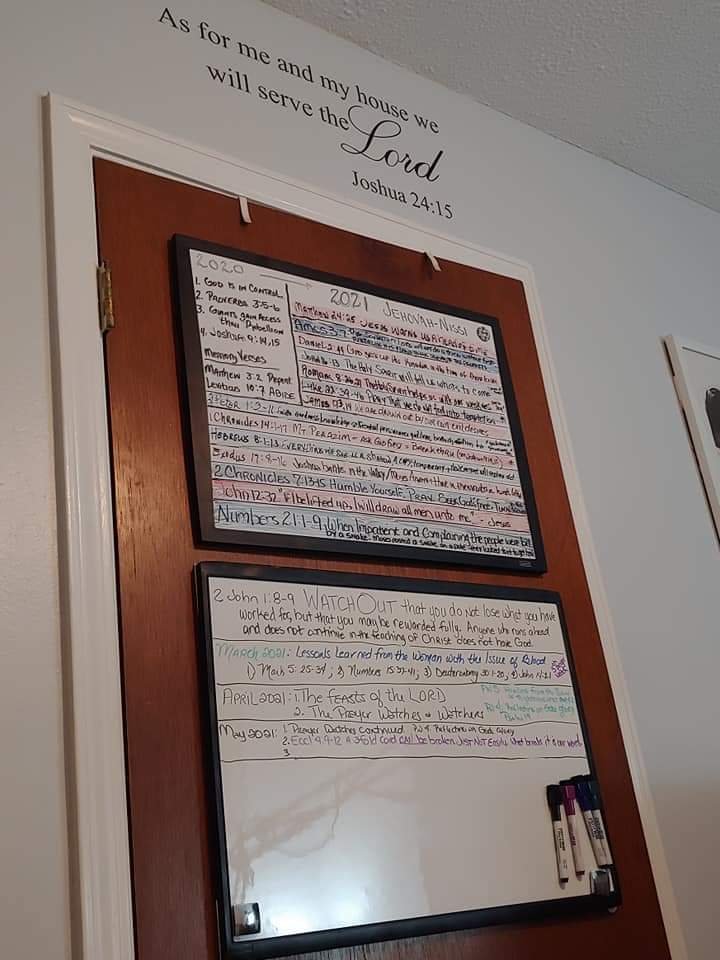 As for me and my house we
will serve the Lord
Joshua 24:15
2020
1. GOD IS IN CONTROL
2. PROVERBS 3:5-6
3. GIANTS GAIN ACCESS
thru Rebellion
4. Joshua 9:14,15
Memory Verses
Matthew 3:2 Repent
Leviticus 10:7 ABIDE
2021 JEHOVAH-NISSI
Matthew 24:25 JESUS WARNS US AHEAD OF TIME
Amos 3:7
Daniel 2:44 God sets up His Kingdom in the time of
John 16:13 The Holy SPIRIT will tell us what is to come
Romans 8:26,27 The Holy Spirit helps us with our weakness
Luke 22:39-46 PRAY that we do not fall into temptation
James
2 PETER 1:3-11
1 Chronicles 14:11-17 Mt. PERAZIM - ASK God
HEBREWS 8:1-13 EVERYTHING WE SEE IS A Shadow & COPY
Exodus 17:8-16 Joshua battles in the Valley
2 CHRONICLES 7:13-15 Humble Yourself, PRAY, SEEK God's face - Turn
John 12:32 "If I be lifted up, I will draw all men unto me" - Jesus
Numbers 21:1-9, When Impatient and Complaining the people were bit
by a snake. Moses raised a snake on a pole
2 John 1:8-9 WATCH OUT that you do not lose what you have
worked for, but that you may be rewarded fully. Anyone who runs ahead
and does not continue in the teaching of Christ does not have God.
MARCH 2021: Lessons Learned from the Woman with the Issue of Blood
1) Mark 5:25-34; 2) Numbers 15:37-41; 3) Deuteronomy 30:1-20; 4) John
APRIL 2021: 1. The FEASTS of the LORD
2. The Prayer Watches & Watchers
May 2021: 1. Prayer Watches Continued Pt 4 Reflection on Gods Glory
2. Eccl 4:9-12 A 3-fold Cord CAN be broken JUST NOT EASILY. What breaks it is our
3.